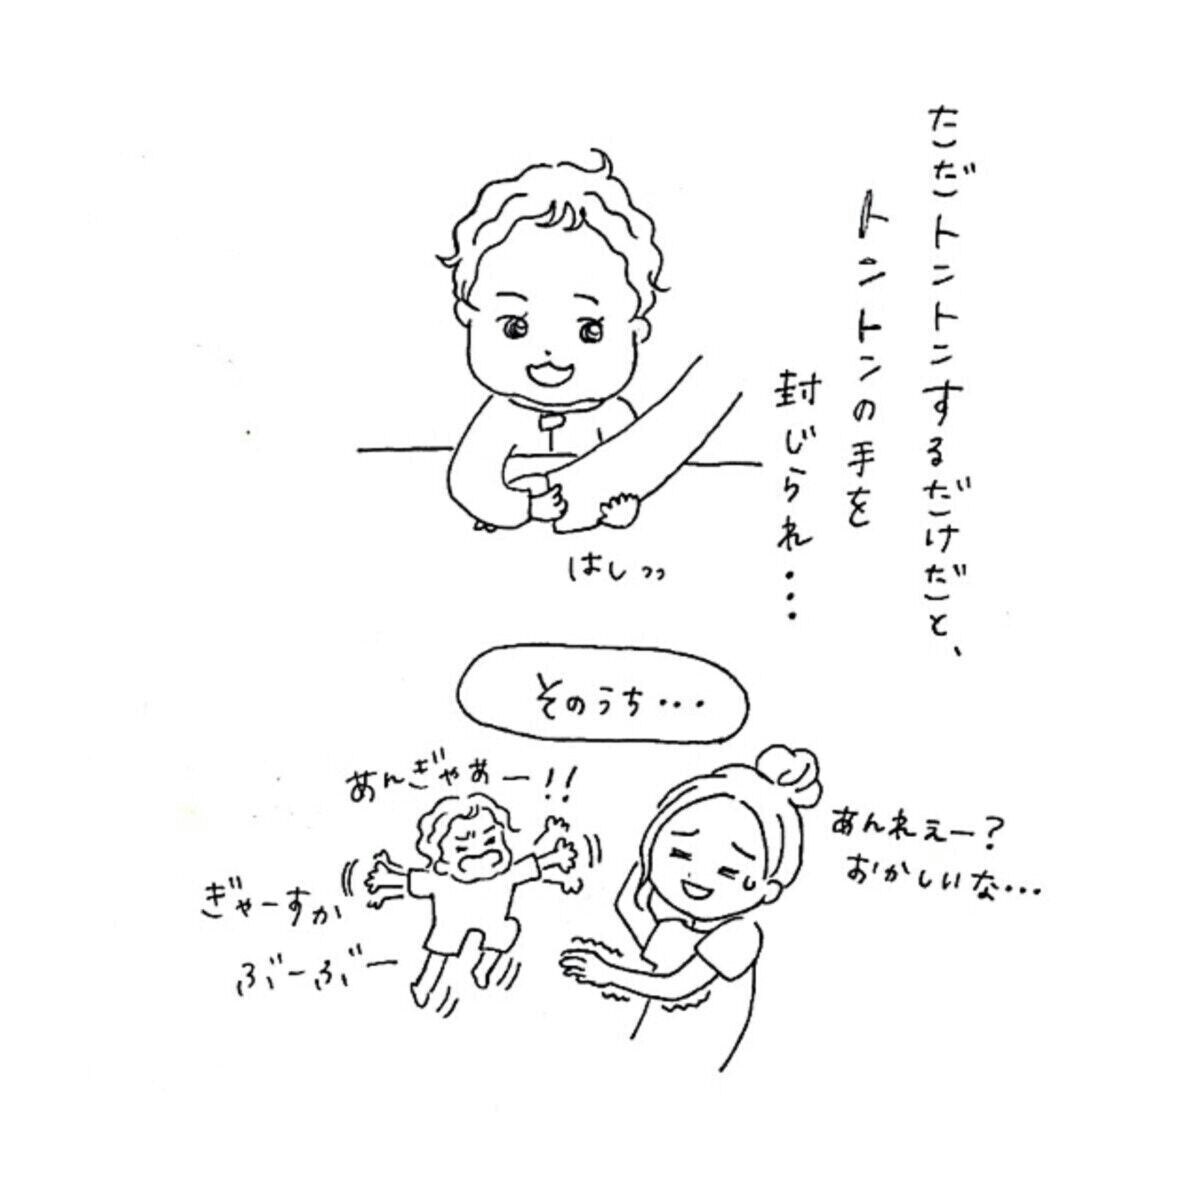 ただトントンするだけだと、
トントンの手を
封じられ・・・
はしっっ
そのうち・・・
あんぎゃあー!!
ぎゃーすか
ぶーぶー
あんれぇー?
おかしいな・・・